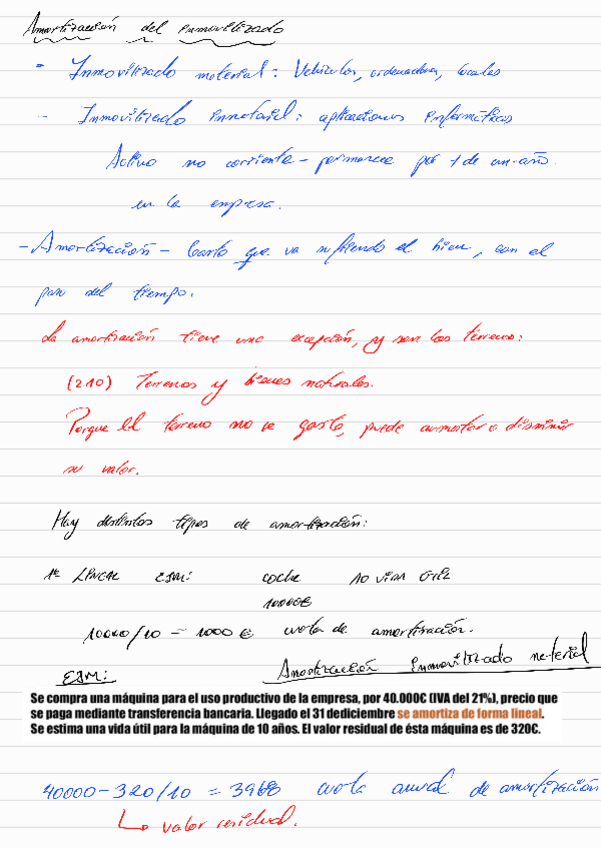 Amortización del inmovilizado
- Inmovilizado material: Vehículos, ordenadores, locales
- Inmovilizado inmaterial: aplicaciones informáticas
Activo no corriente - permanece por + de un año.
en la empresa.
- Amortización - Gasto que va sufriendo el bien, con el
paso del tiempo.
La amortización tiene una excepción, y son los terrenos:
(210) Terrenos y bienes naturales.
Porque el terreno no se gasta, puede aumentar o disminuir
su valor.
Hay distintos tipos de amortización:
1º LINEAL EJM: coche 10 VIDA ÚTIL
10000€
10000/10 = 1000 € cuota de amortización.
EJM: Amortización inmovilizado material
Se compra una máquina para el uso productivo de la empresa, por 40.000€ (IVA del 21%), precio que
se paga mediante transferencia bancaria. Llegado el 31 dediciembre se amortiza de forma lineal.
Se estima una vida útil para la máquina de 10 años. El valor residual de ésta máquina es de 320€.
40000-320/10 = 3968 cuota anual de amortización
↳ valor residual.